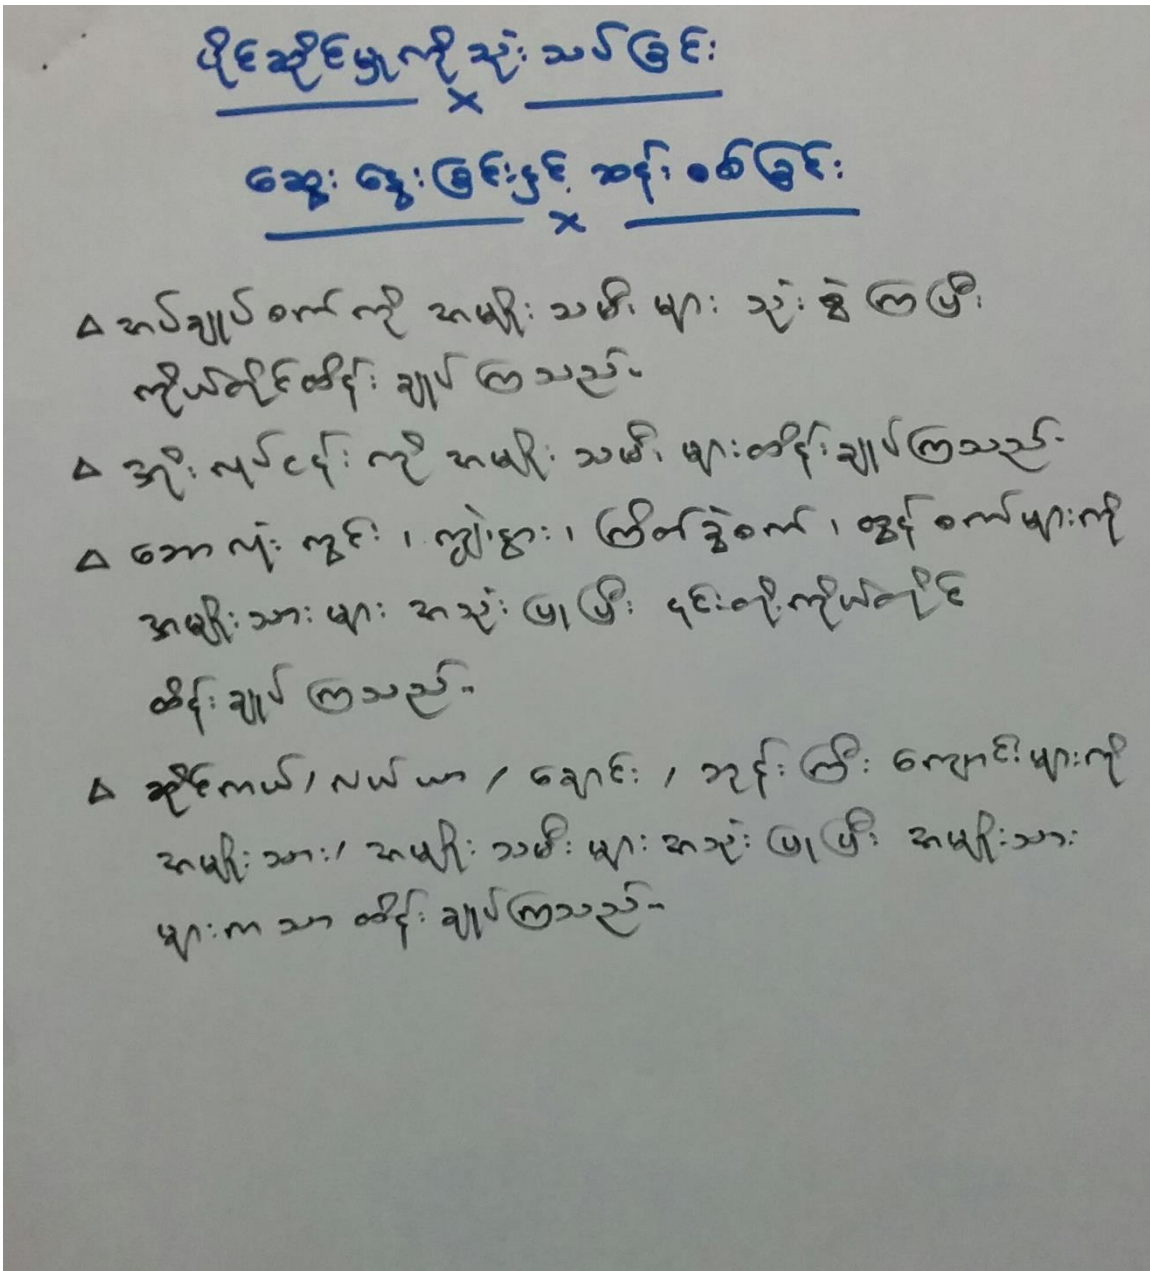 ပိုင်ဆိုင်မှုကို သုံးသပ်ခြင်း
ဆွေးနွေးခြင်းနှင့် ဆန်းစစ်ခြင်း
အပ်ချုပ်စက်ကို အမျိုးသမီးများ သုံးစွဲကြပြီး
ကိုယ်တိုင်ထိန်းချုပ်ကြသည်။
အိုးလုပ်ငန်းကို အမျိုးသမီးများထိန်းချုပ်ကြသည်။
ဘောလုံးကွင်း၊ ကျွဲ၊နွား၊ ကြိတ်ခွဲစက်၊ ထွန်စက်များကို
အမျိုးသားများ အသုံးပြုပြီး ၎င်းတို့ကိုယ်တိုင်
ထိန်းချုပ်ကြသည်။
ဆိုင်ကယ်/လယ်ယာ/ချောင်း/ဘုန်းကြီးကျောင်းများကို
အမျိုးသား/အမျိုးသမီးများအသုံးပြုပြီး အမျိုးသား
များကသာ ထိန်းချုပ်ကြသည်။